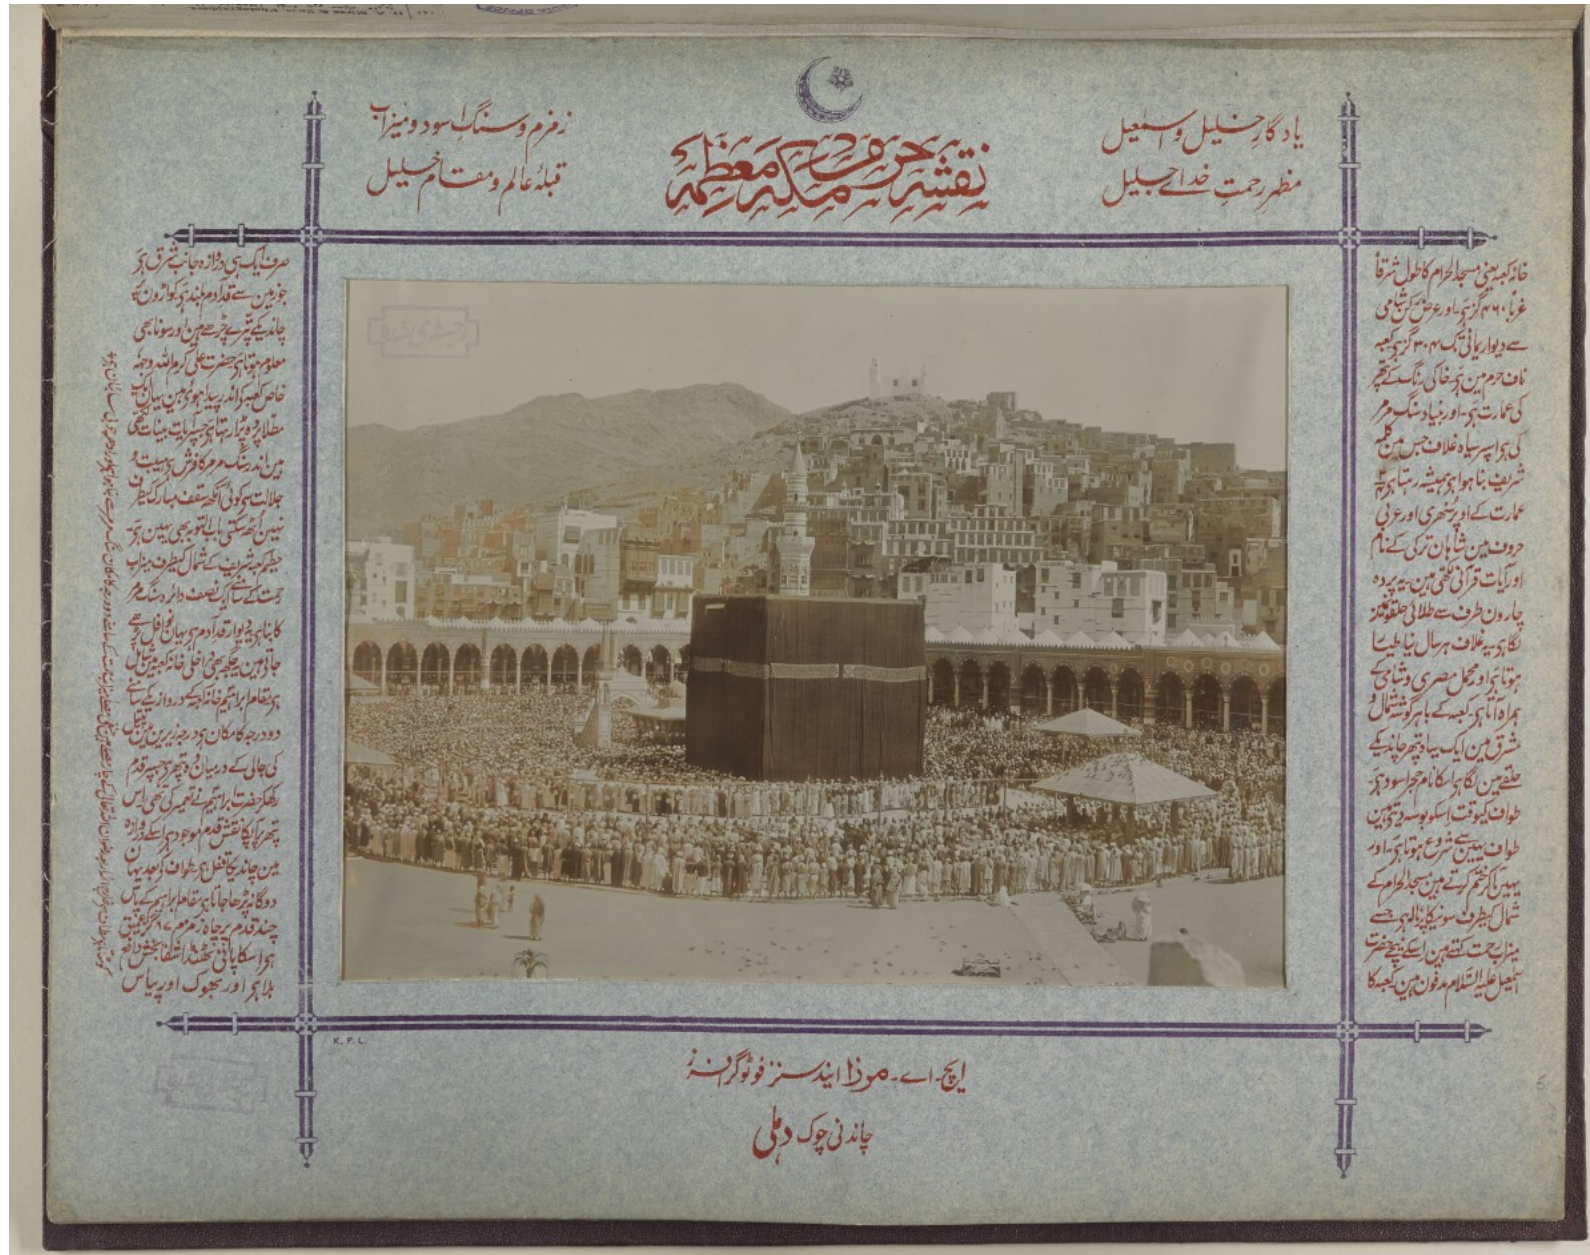 یادگارِ خلیل و اسمٰعیل
مظہرِ رحمتِ خدائے جلیل
نقشہ حرم
مکہ معظمہ
زمزم و سنگِ اسود و میزاب
قبلۂ عالم و مقام خلیل
خانہ کعبہ یعنی مسجد الحرام کا طول شرقاً
غرباً ۴۶۰ گز ہی اور عرض رکن شامی
سے دیوار یمانی تک ۳۰۴ گز ہی کعبہ
ناف حرم مین ہی خاکی رنگ کے پتھر
کی عمارت ہی ۔ اور بنیاد سنگ مرمر
کی ہی اسپر سیاہ غلاف جس مین کلمہ
شریف بنا ہوا ہی ہمیشہ رہتا ہی
عمارت کے اوپر سُنھری اور عربی
حروف مین شاہان ترکی کے نام
اور آیات قرآنی لکھی ہین یہ پردہ
چارون طرف سے طلائی حلقو
لگا ہی یہ غلاف ہر سال نیا طیار
ہوتا ہی اور محمل مصری و شامی کے
ہمراہ آتا ہی کعبہ کے باہر گوشہ شمال و
مشرق مین ایک سیاہ پتھر چاندیکے
حلقے مین لگا ہی اسکا نام حجر اسود ہی
طواف کیوقت اسکو بوسہ دیتے ہین
طواف یہین سے شروع ہوتا ہی ۔ اور
یہین آکر ختم کرتے ہین مسجد الحرام کے
شمال کیطرف سونیکا پرنالہ ہی جسے
میزاب رحمت کہتے ہین اسکے نیچے حضرت
اسمٰعیل علیہ السلام مدفون ہین کعبہ کا
صرف ایک ہی دروازہ جانب شرق ہی
جو زمین سے قد آدم بلند ہی کواڑون پر
چاندیکے پترے چڑھے ہین اور سونا بھی
معلوم ہوتا ہی حضرت علی کرم اللہ وجہہ
خاص کعبہ کے اندر پیدا ہوئے ہین یہان ایک
مطلا پردہ پڑا رہتا ہی جسپر آیات بینات لکھی
ہین اندر سنگ مرمر کا فرش ہی ہیبت و
جلالت سے کوئی آنکھ سقف مبارک کیطرف
نہین اُٹھ سکتی باب التوبہ بھی یہین ہی
حطیم کعبہ شریف کے شمال کیطرف میزاب
رحمت کے سامنے ایک نصف دائرہ سنگ مرمر
کا بنا ہی یہ دیوار قد آدم ہی یہان نوافل پڑھے
جاتے ہین یہ جگہ بھی داخل خانہ کعبہ
ہی مقام ابراہیم خانہ کعبہ کے دروازیکے سامنے
دو درجہ کا مکان ہی درجہ زیرین مین
کی جالی کے درمیان وہ پتھر ہی جسپر قدم
رکھکر حضرت ابراہیم نے تعمیر کی تھی اس
پتھر پر آپکا نقش قدم موجود ہی اسکے دروازہ
مین چاندیکا قفل ہی طواف کے بعد یہان
دوگانہ پڑھا جاتا ہی مقام ابراہیم کے پاس
چند قدم پر چاہ زمزم ۸۷ گز کا عمیق
ہی اسکا پانی ٹھنڈا شفا بخش دافع
بلا ہی اور بھوک اور پیاس
رجسٹری شدہ
K. P. L.
ایچ ۔ اے ۔ مرزا اینڈ سنز فوٹوگرافرز
چاندنی چوک دہلی